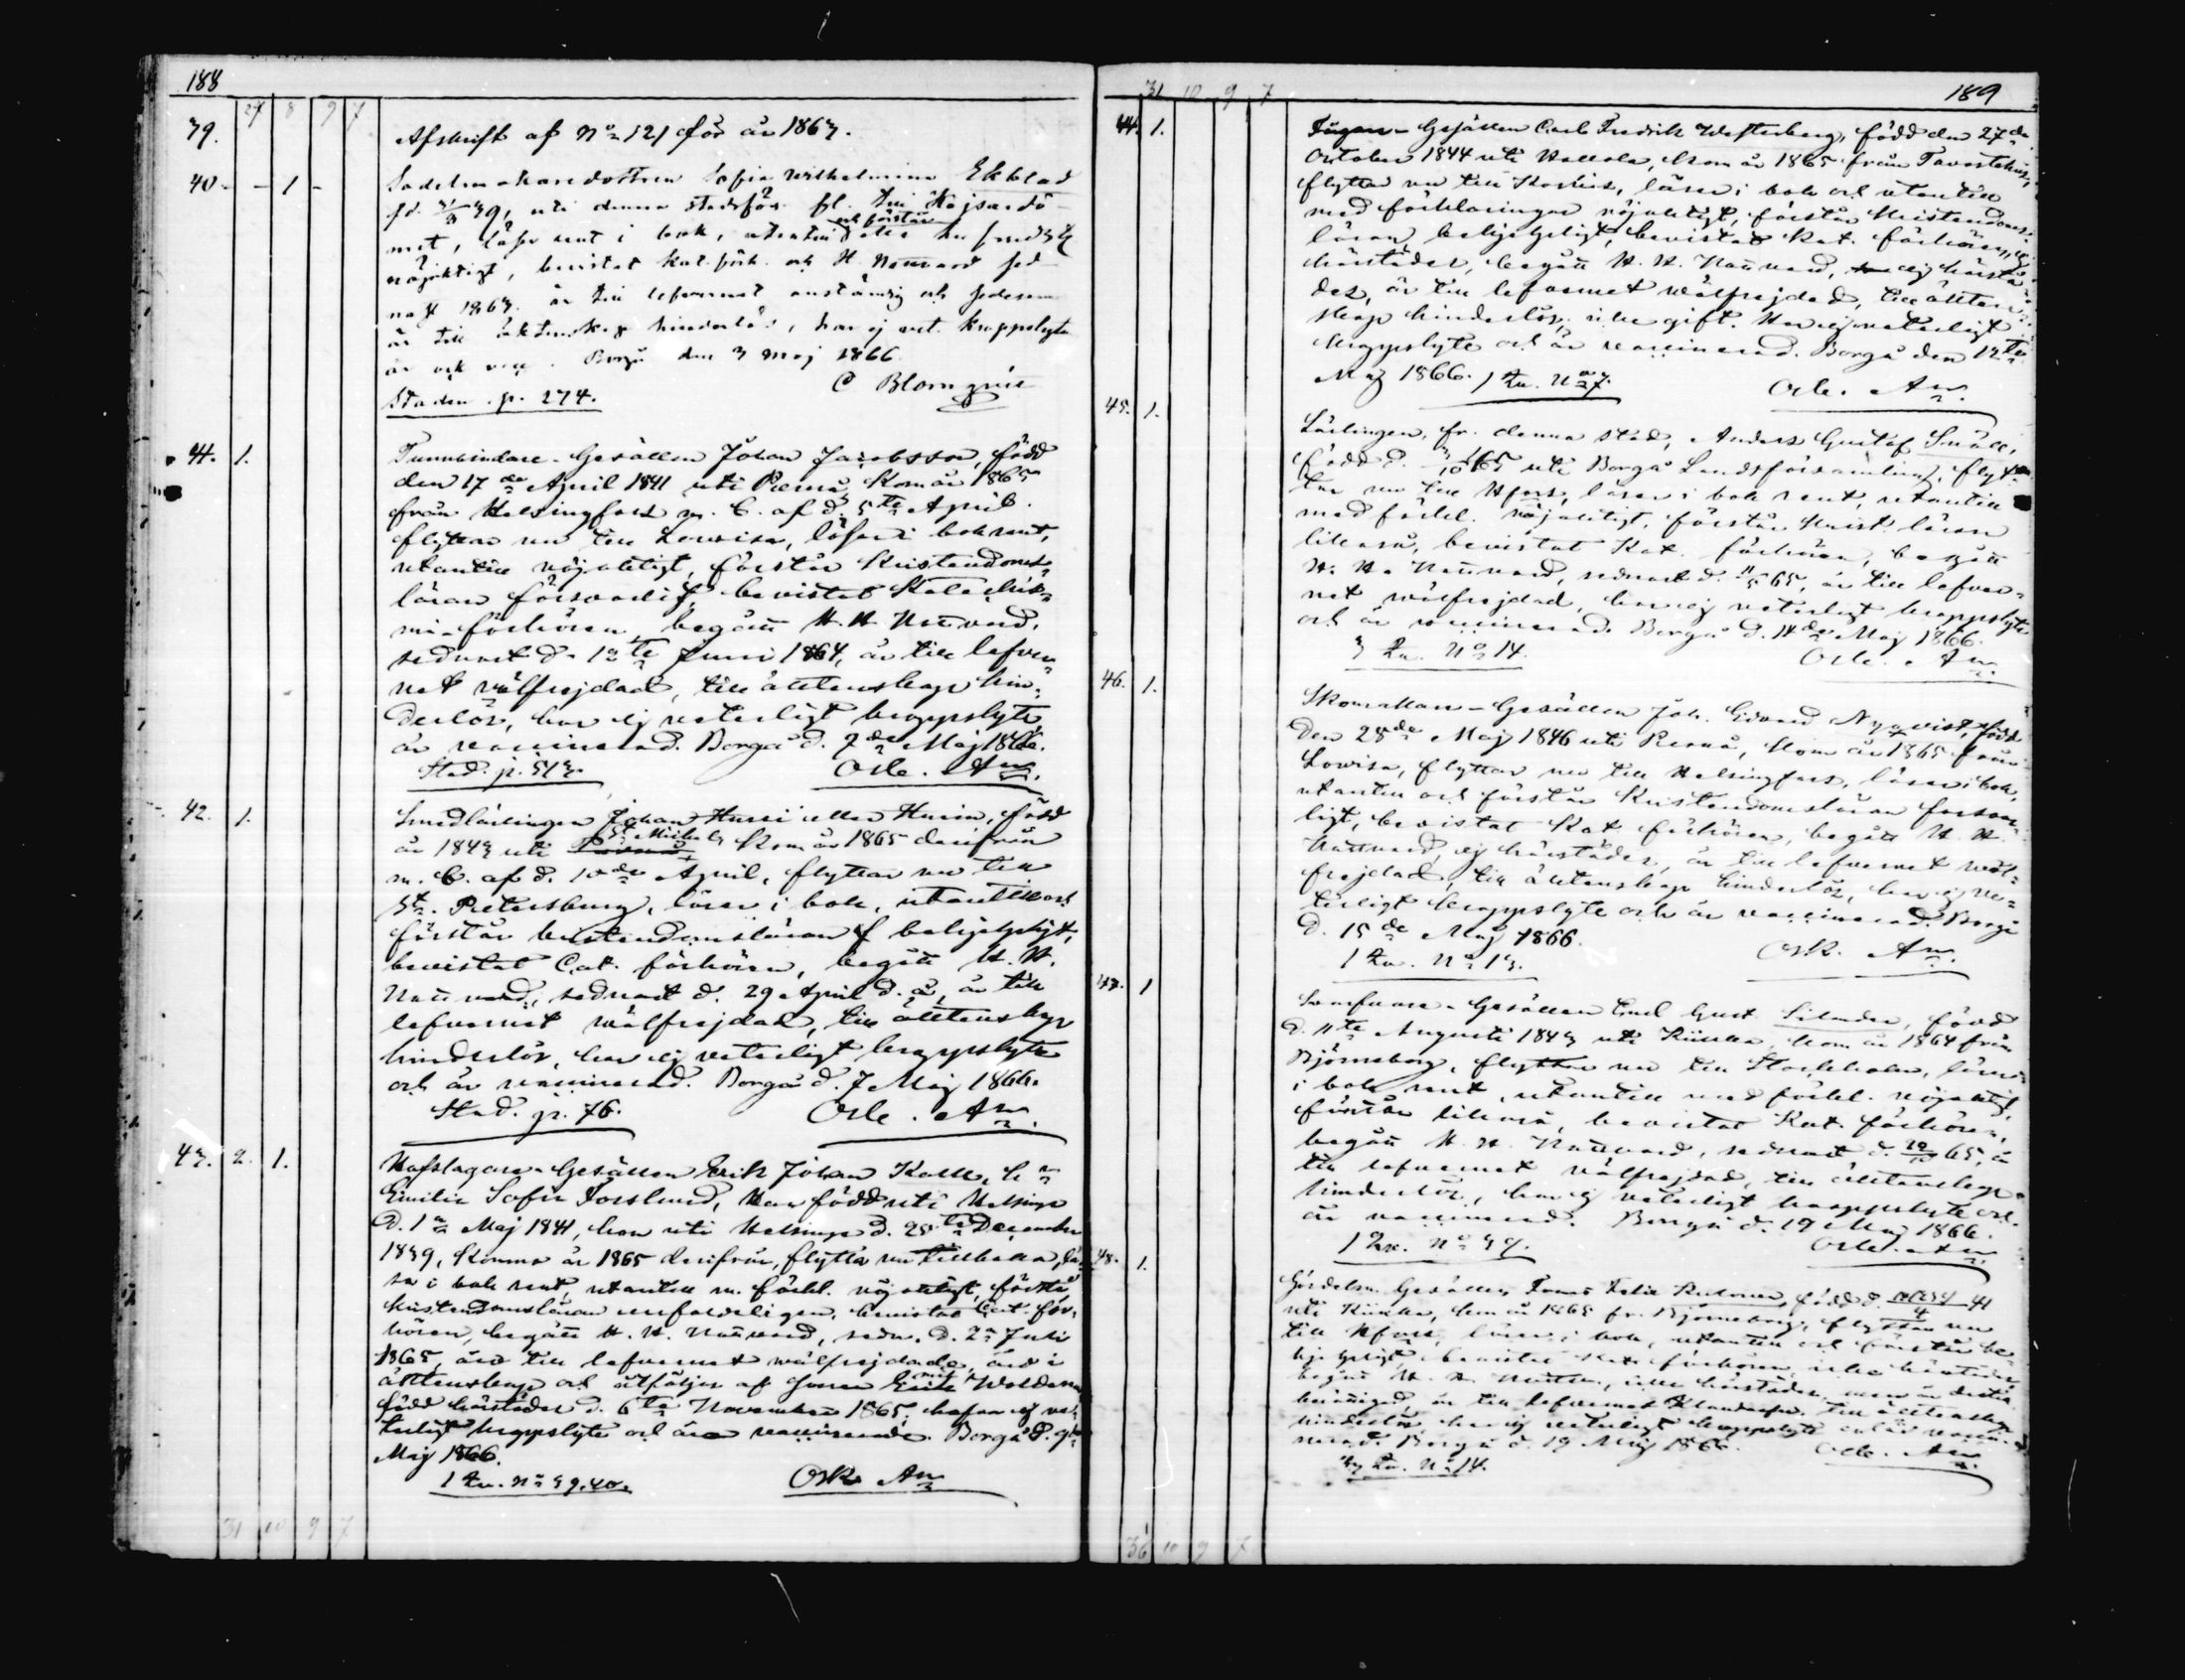 188
27 8 9 7
39. Afskrift af No 121 för år 1863.
40 - - 1 - Sadelmakaredottren Sofia Wilhelmina Ekblad
fd. 39, uti denna stadsför. fl. till
met, läser rent i bok, utantill och förstår
nöjaktigt, bevistat Kat. förh. och H. Nattvard sed
nast 1863. är till lefvernet anständig och
är till äktenskap hinderlös, har ej vet. kroppslyte
är ock vacc. Borgå den 3 Maj 1866.
Staden p. 274. C Blomqvist
41. 1. Tunnbindare-Gesällen Johan Jacobsson, född
den 17de April 1841 uti Pernå, Kom år 1865
från Helsingfors m. b. af d. 5te April.
flyttar nu till Lowisa, läser i bok rent,
utantill nöjaktigt, förstår Kristendoms-
läran försvarligt, bevistat Katechis-
mi-förhören, begått H. H. Nattvard,
sednast d. 12te Juni 1864, är till lefver-
net välfrejdad, till äktenskap hin-
derlös, har ej veterligt kroppslyte,
är vaccinerad. Borgå d. 7de Maj 1866.
Stad. p. 513. Osk. Am.
42. 1. Smedlärlingen Johan Hussi eller Husin, född
år 1843 uti St Michels Kom år 1865 derifrån
m. b. af d. 10de April, flyttar nu till
St. Petersburg, läser i bok, utantill och
förstår kristendomsläran behjelpligt,
bevistat Cat. förhören, begått H. H.
Nattvard, sednast d. 29 April d. å., är till
lefvernet välfrejdad, till äktenskap
hinderlös, har ej veterligt kroppslyte
och är vaccinerad. Borgå d. 7 Maj 1866.
Stad. p. 76. Osk. Am.
43. 2. 1. Hofslagare-Gesällen Erik Johan Kalle, h
Emilie Sofie Forslund, Han född uti Helsinge
d. 1a Maj 1841, hon uti Helsinge d. 25te December
1839, Komna år 1865 derifrån, flytta nu tillbaka, lä-
sa i bok rent, utantill m. förkl. nöjaktigt, förstå
kristendomsläran bevistat Cat. för-
hören, begått H. H. Nattvard, sedn. d. 2a Juli
1865, äro till lefvernet välfrejdade, äro i
äktenskap och åtföljas af sonen Erik Woldemar
född härstädes d. 6te November 1865, hafva ej ve-
terligt kroppslyte och äro vaccinerade. Borgå d. 9de
Maj 1866.
1 Qu. No 39.40. Osk Am
31 10 9 7
189
31 10 9 7
44. 1. Gesällen Carl Fredrik Westerberg, född den 27de
October 1844 uti Hattula, Kom år 1865 från Tavastehus,
flyttar nu till Koskis, läser i bok och utantill
med förklaringar nöjaktigt, förstår Kristendoms-
läran behjelpligt, bevistat Kat. förhören, ej
härstädes, begått H. H. Nattvard, ej härstä-
des, är till lefvernet välfrejdad, till äkten-
skap hinderlös, icke gift. Har ej veterligt
kroppslyte och är vaccinerad. Borgå den 12te
Maj 1866. 1 Qu. No 27. Osk. Am.
45. 1. Lärlingen, fr. denna stad, Anders Gustaf Småll,
född d. uti Borgå Landsförsamling, flyt-
tar nu till Hfors, läser i bok rent, utantill
med förkl. nöjaktigt, förstår Krist. läran
likaså, bevistat Kat. förhören, begått
H. H. Nattvard, sednast d. 11/5 65, är till lefver-
net välfrejdad, har ej veterligt kroppslyte
och är vaccinerad. Borgå d. 14de Maj 1866.
3 Qu. No 14. Osk. Am.
46. 1. Skomakare-Gesällen Joh. Edvard Nyqvist, född
den 28de Maj 1846 uti Pernå, kom år 1865 från
Lowisa, flyttar nu till Helsingfors, läser i bok,
utantill och förstår Kristendomsläran försvar-
ligt, bevistat Kat. förhören, begått H. H.
Nattvard, ej härstädes, är till lefvernet väl-
frejdad, till äktenskap hinderlös, har ej ve-
terligt kroppslyte och är vaccinerad. Borgå
d. 15de Maj 1866.
1 Qu. No 13. Osk. Am.
47. 1 Gesällen Emil Gust. Silander, född
d. 11te Augusti 1843 uti Kiikka, kom år 1864 från
Björneborg, flyttar nu till Stockholm, läser
i bok rent, utantill med förkl. nöjaktigt,
förstår likaså, bevistat Kat. förhören,
begått H. H. Nattvard, sednast d. 65, är
till lefvernet välfrejdad, till äktenskap
hinderlös, har ej veterligt kroppslyte och
är vaccinerad. Borgå d. 19 Maj 1866.
1 Qu. No 39. Osk. Am.
48. 1. Gesällen född d. 41
uti Kiikka, kom år 1865 fr. Björneborg, flyttar nu
till Hfors, läser i bok, utantill och förstår be-
hjelpligt, bevistat Kat. förhören, icke härstädes
begått H. H. Nattv., icke härstädes, men är dertill
berättigad, är till lefvernet till äktenskap
hinderlös, har ej veterligt kroppslyte och är vacci-
nerad. Borgå d. 19 Maj 1866. Osk. Am.
Qu. No 14.
36 10 9 7